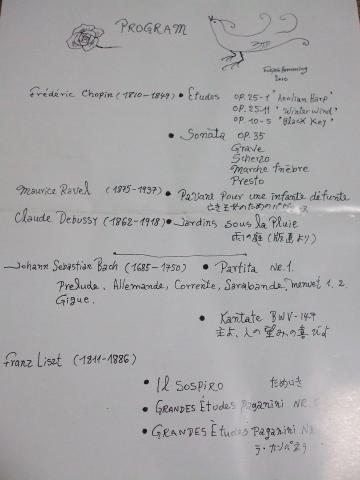 PROGRAM
2010
Frédéric Chopin (1810-1849) • Études OP.25-1 "Aeolian Harp"
OP.25-11 "Winter Wind"
OP.10-5 "Black Key"
• Sonata OP.35
Grave
Scherzo
Marche Fnèbre
Presto
Maurice Ravel (1875-1937) • Pavane Pour une infante défunte
亡き王女のためのパヴァーヌ
Claude Debussy (1862-1918) • Jardins sous la Pluie
雨の庭 (版画より)
Johann Sebastian Bach (1685-1750) • Partita Nr.1.
Prelude, Allemande, Corrente, Sarabande, menuet 1. 2.
Gigue.
• Kantate BWV-147
主よ、人の望みの喜びよ
Franz Liszt (1811-1886)
• Il SOSPIRO ためいき
• GRANDES Études Paganini NR.
• GRANDES Études Paganini NR.
ラ・カンパネラ